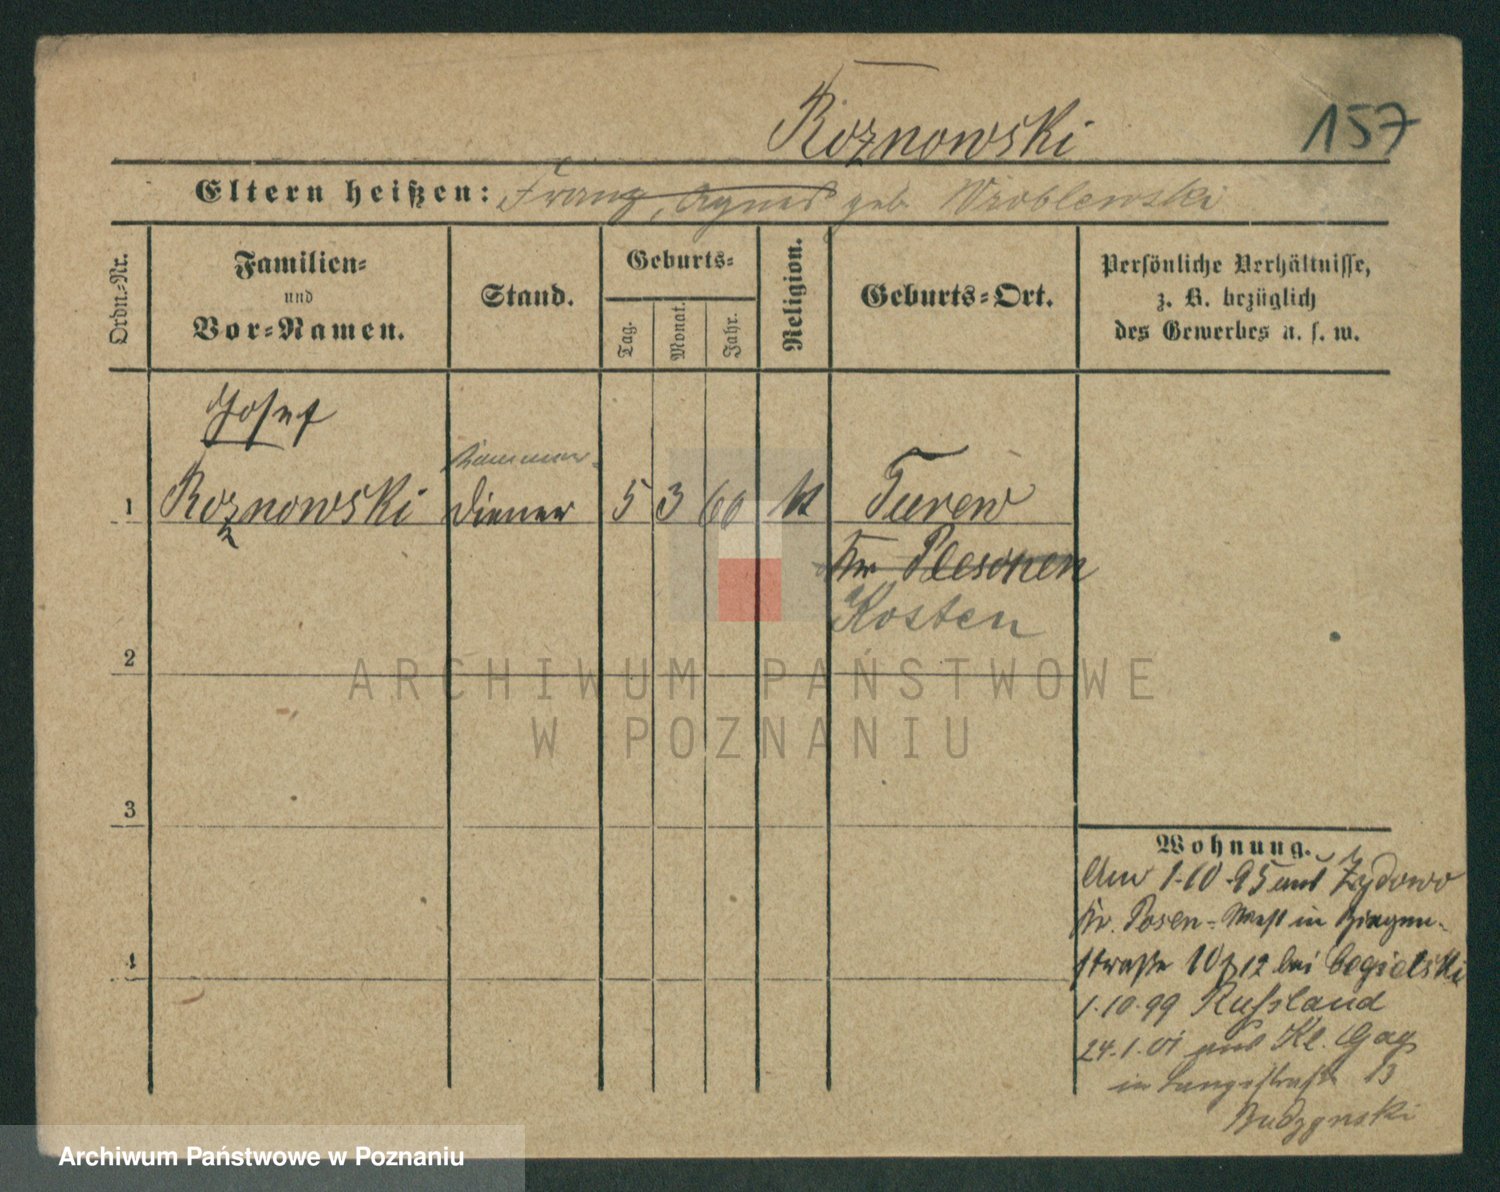 Roznowski
157
Eltern heißen: Franz, Agnes geb Wroblewski
Ordn.-Nr.
Familien-
und
Vor-Namen.
Stand.
Geburts-
Tag.
Monat.
Jahr.
Religion.
Geburts-Ort.
Persönliche Verhältnisse,
z. B. bezüglich
des Gewerbes u. s. w.
Josef
Kammer-
1 Roznowski Diener 5 3 60 k Turew
z
Kr Pleschen
Kosten
2
3
4
Wohnung.
Am 1-10-95 aus Żydowo
Kr. Posen-West in Ziegen-
straße 10/12 bei Cegielski
1.10.99 Russland
24.1.01 aus Kl. Gay
in Langestraße 13
Budzynski
ARCHIWUM PAŃSTWOWE
W POZNANIU
Archiwum Państwowe w Poznaniu